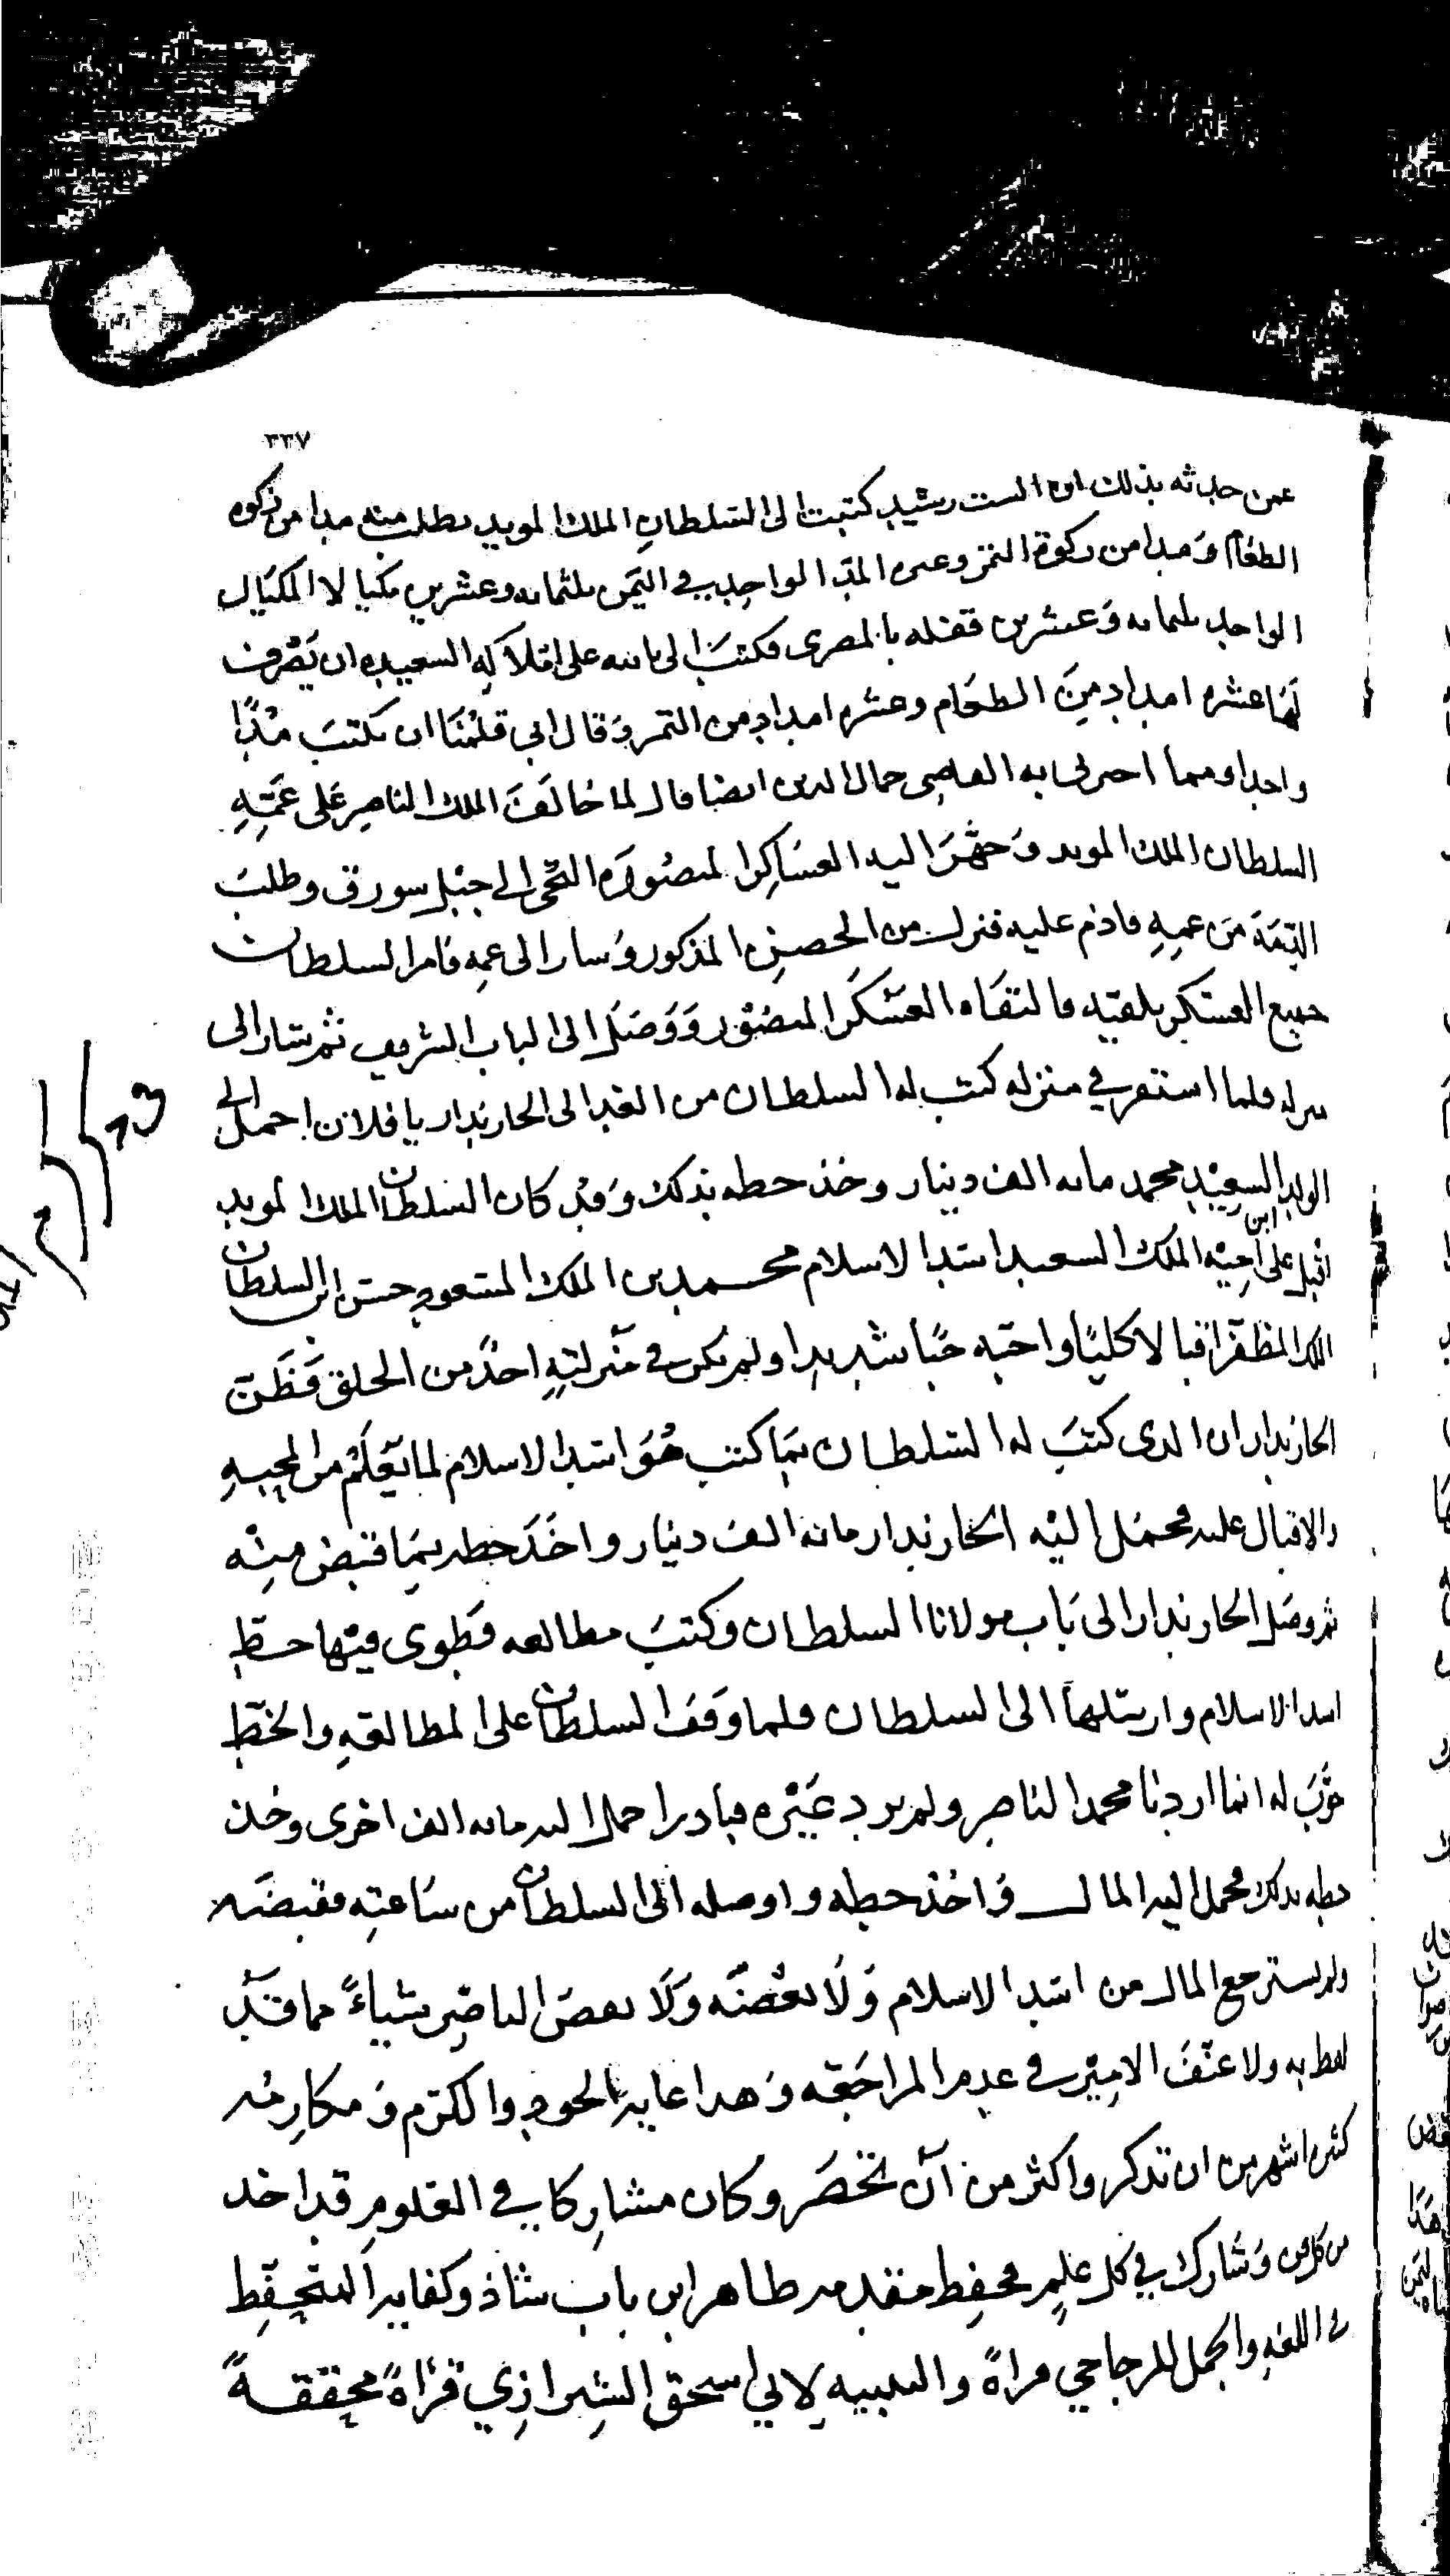 ٣٣٧
عمن حدثه بذلك ان الست رشيد كتبت الى السلطان الملك المويد تطلب منه مدا من زكوة
الطعام ومدا من زكوة التمر وعبرة المد الواحد في اليمن ثلثمائه وعشرين مكيالا المكيال
الواحد ثلثمائه وعشرين قفله بالمصري فكتب الى نائبه على املاكه السعيده ان يصرف
لها عشرة امداد من الطعام وعشره امداد من التمر وقال ابى قلمنا ان يكتب مدًا
واحدا ومما اخبرني به القاضي جمال الدين ايضا قال لما خالف الملك الناصر على عمّه
السلطان الملك المويد وجهز اليه العساكر المنصوره التجى الى جبل سورق وطلب
الذمة من عمه فاذم عليه فنزل من الحصن المذكور وسار الى عمه فامر السلطان
جميع العسكر بلقيه فالتقاه العسكر المنصور ووصل الى الباب الشريف ثم سار الى
منزله فلما استقر في منزله كتب له السلطان من الغد الى الخازندار يا فلان احمل الى
الولد السعيد محمد مائه الف دينار وخذ خطه بذلك وقد كان السلطان الملك المويد
اقبل على ابن اخيه الملك السعيد اسد الاسلام محمد بن الملك المسعود حسن ابن السلطان
الملك المظفر اقبالا كليًا واحبه حبًا شديدا ولم يكن في منزلته احدٌ من الخلق فظن
الخازندار ان الذي كتب له السلطان بما كتب هو اسد الاسلام لما يعلم من المحبه
والاقبال عليه فحمل اليه الخازندار مائة الف دينار واخذ خطه بما قبض منه
ثم وصل الخازندار الى باب مولانا السلطان وكتب مطالعه فطوى فيها خط
اسد الاسلام وارسلها الى السلطان فلما وقف السلطان على المطالعه والخط
جوّب له انما اردنا محمد الناصر ولم نرد غيره فبادر احمل اليه مائه الف اخرى وخذ
خطه بذلك فحمل اليه المال واخذ خطه واوصله الى السلطان من ساعته فقبضه
ولم يسترجع المال من اسد الاسلام ولا بعضه ولا نقص الناصر شياءً مما قد
لفظ به ولا عنّف الامير في عدم المراجعه وهذا غاية الجود والكرم ومكارمه
كثيره اشهر من ان تذكر واكثر من ان تحصر وكان مشاركا في العلوم قد اخذ
من كل فن وشارك في كل علم فحفظ مقدمه طاهر ابن باب شاذ وكفايه المتحفظ
في اللغه والجمل للزجاجي قراةً والتنبيه لابي اسحق الشيرازي قرأةً محققةً